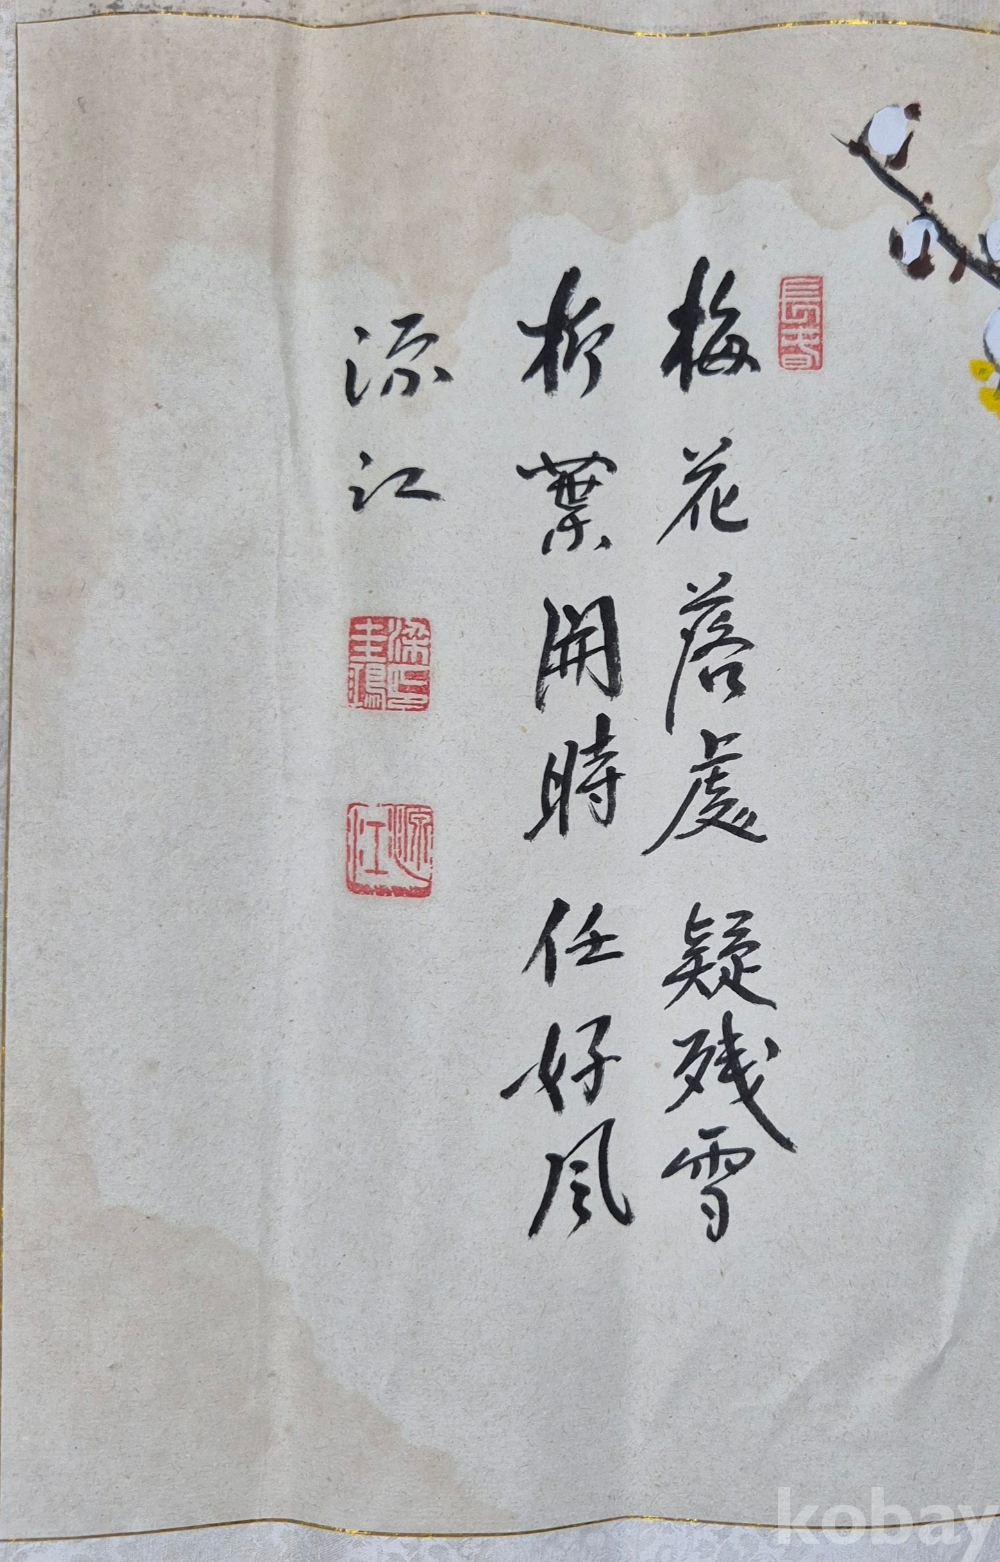 長春
梅花落處疑残雪
柳葉開時任好風
源江
源江
kobay